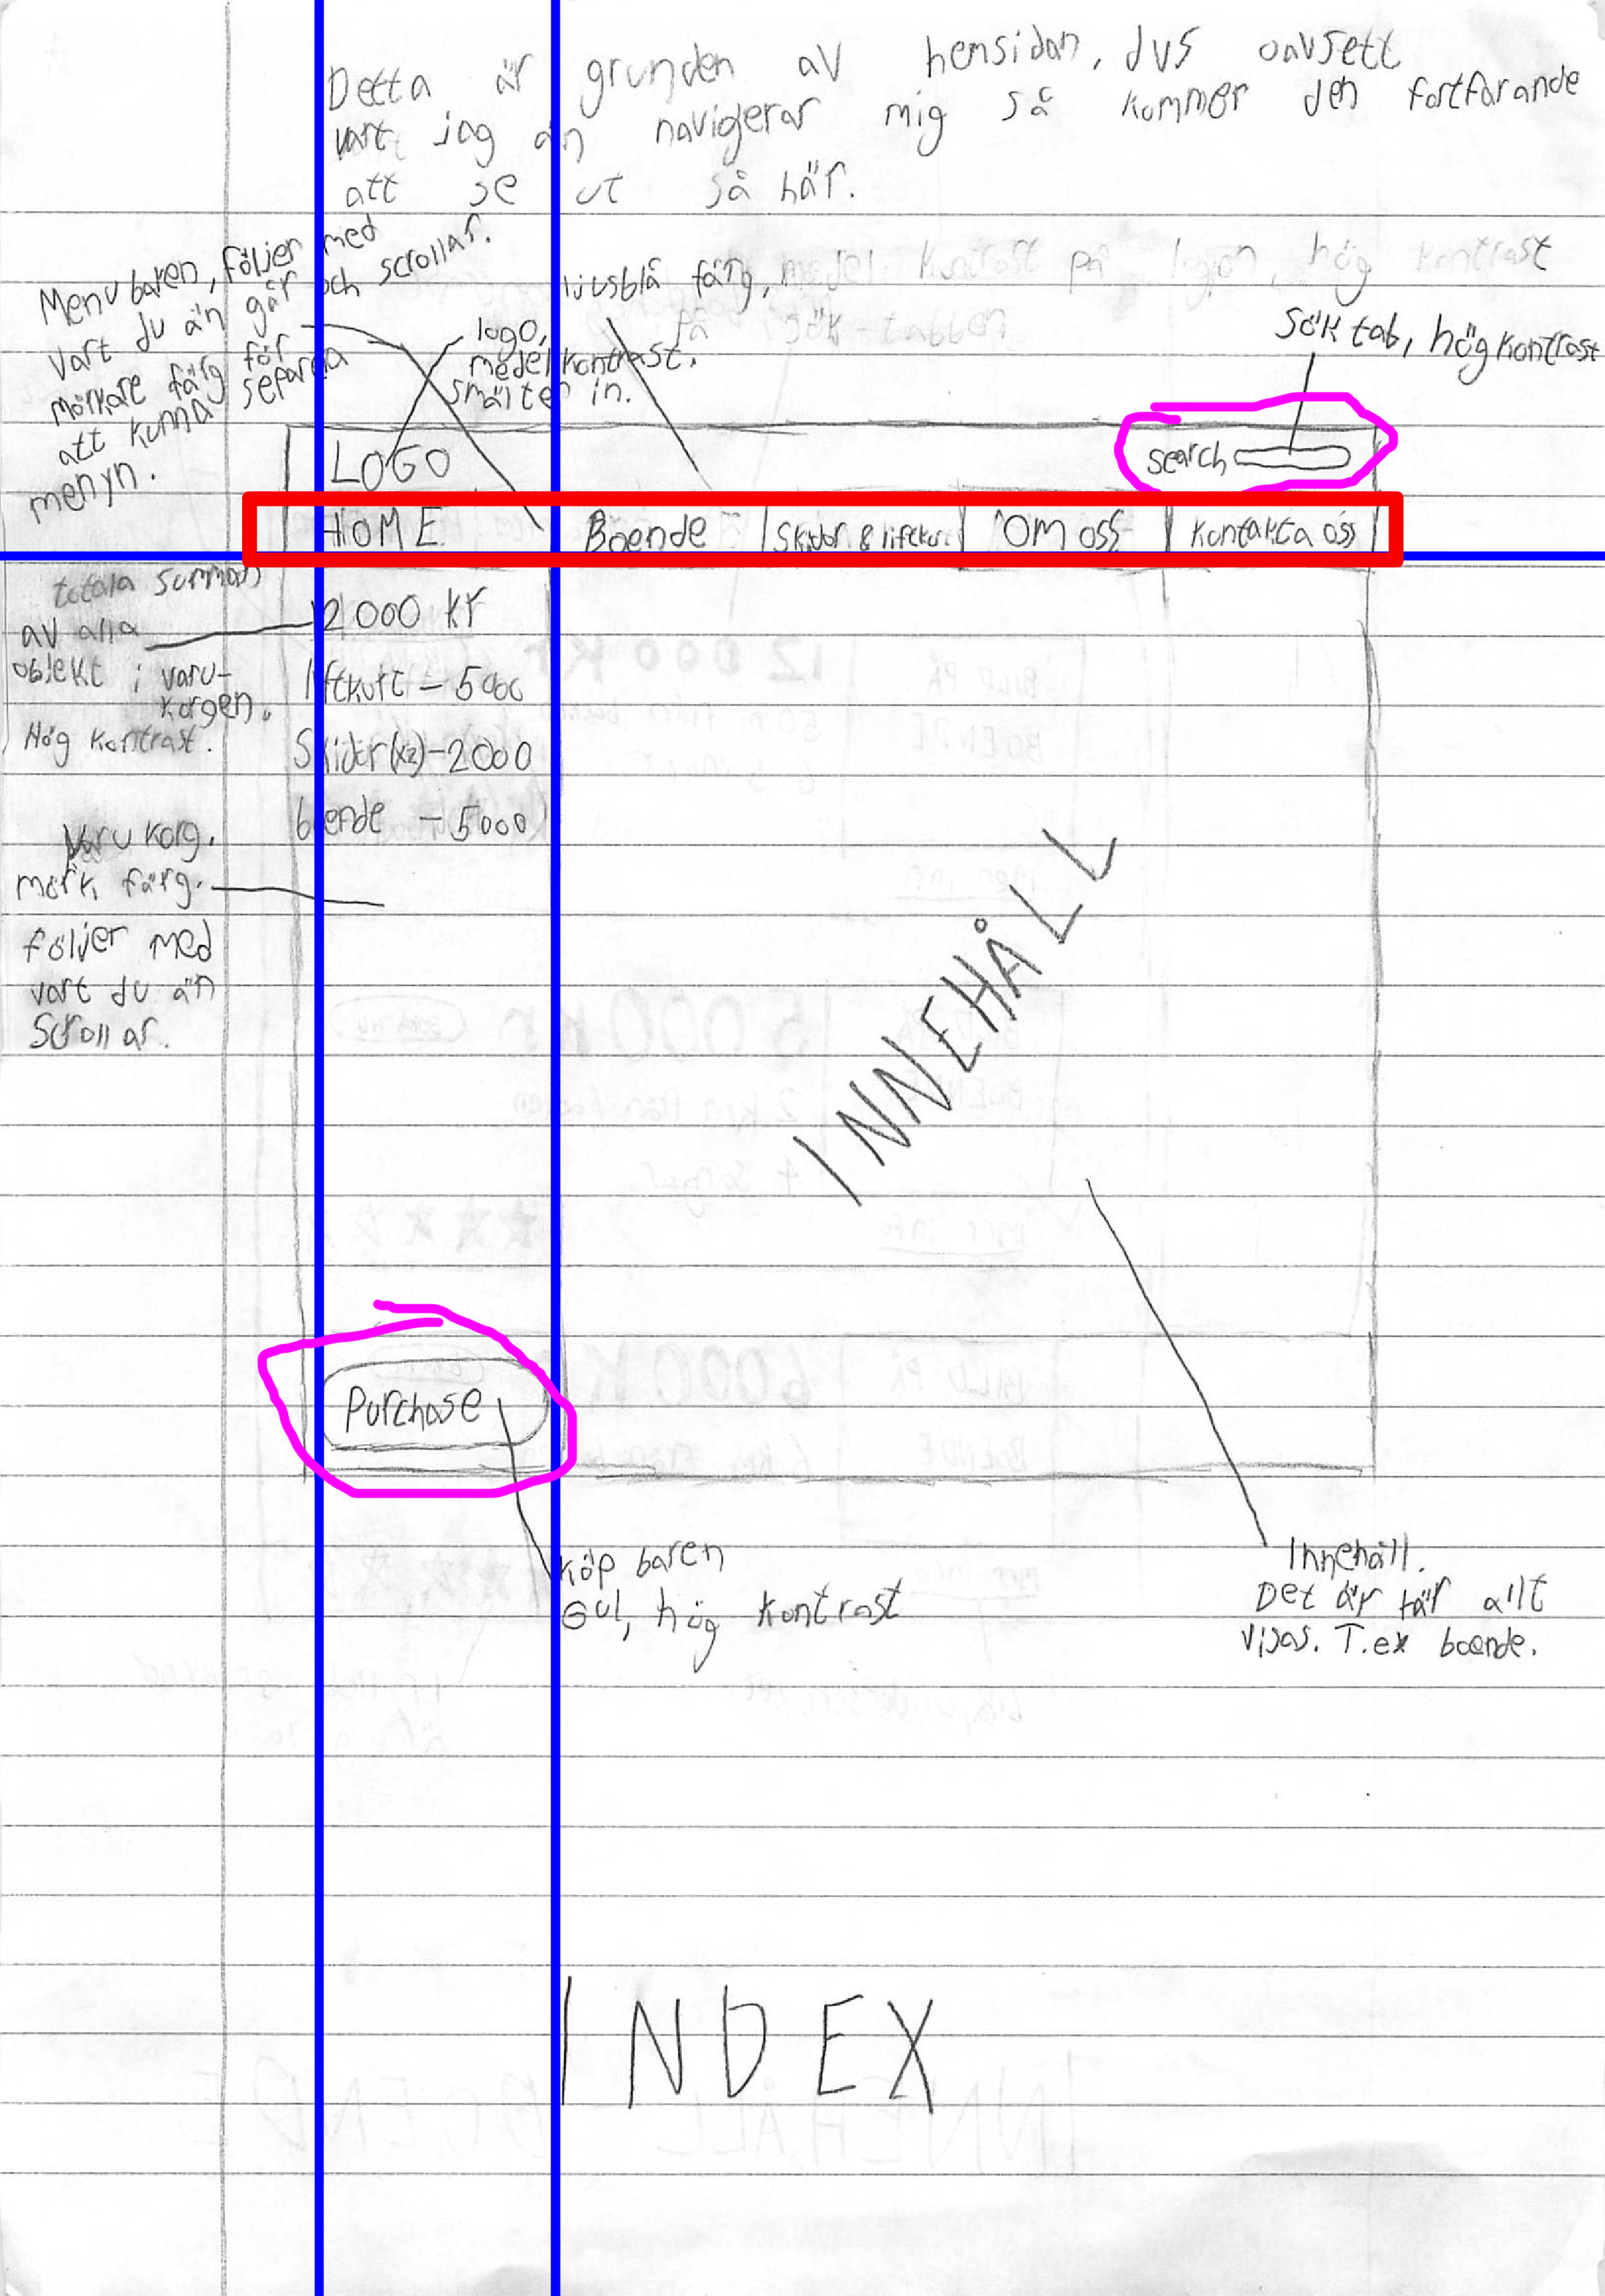 Detta är grunden av hemsidan, dvs oavsett
vart jag än navigerar mig så kommer den fortfarande
att se ut så här.
Menu baren, följer med
vart du än går och scrollar.
mörkare färg för
att kunna separera
menyn.
logo,
medel kontrast.
smälter in.
ljusblå färg, medel kontrast på logon, hög kontrast
på sök-tabben
Sök tab, hög kontrast
LOGO
search
HOME
Boende
Skidor & liftkort
OM oss
Kontakta oss
totala summan
av alla
objekt i varu-
korgen.
Hög kontrast.
12000 kr
liftkort – 5000
Skidor(x2)–2000
boende – 5000
Varu korg.
mörk färg.
följer med
vart du än
Scrollar.
INNEHÅLL
Purchase
Köp baren
Gul, hög kontrast
Innehåll.
Det är här allt
visas. T.ex boende.
INDEX